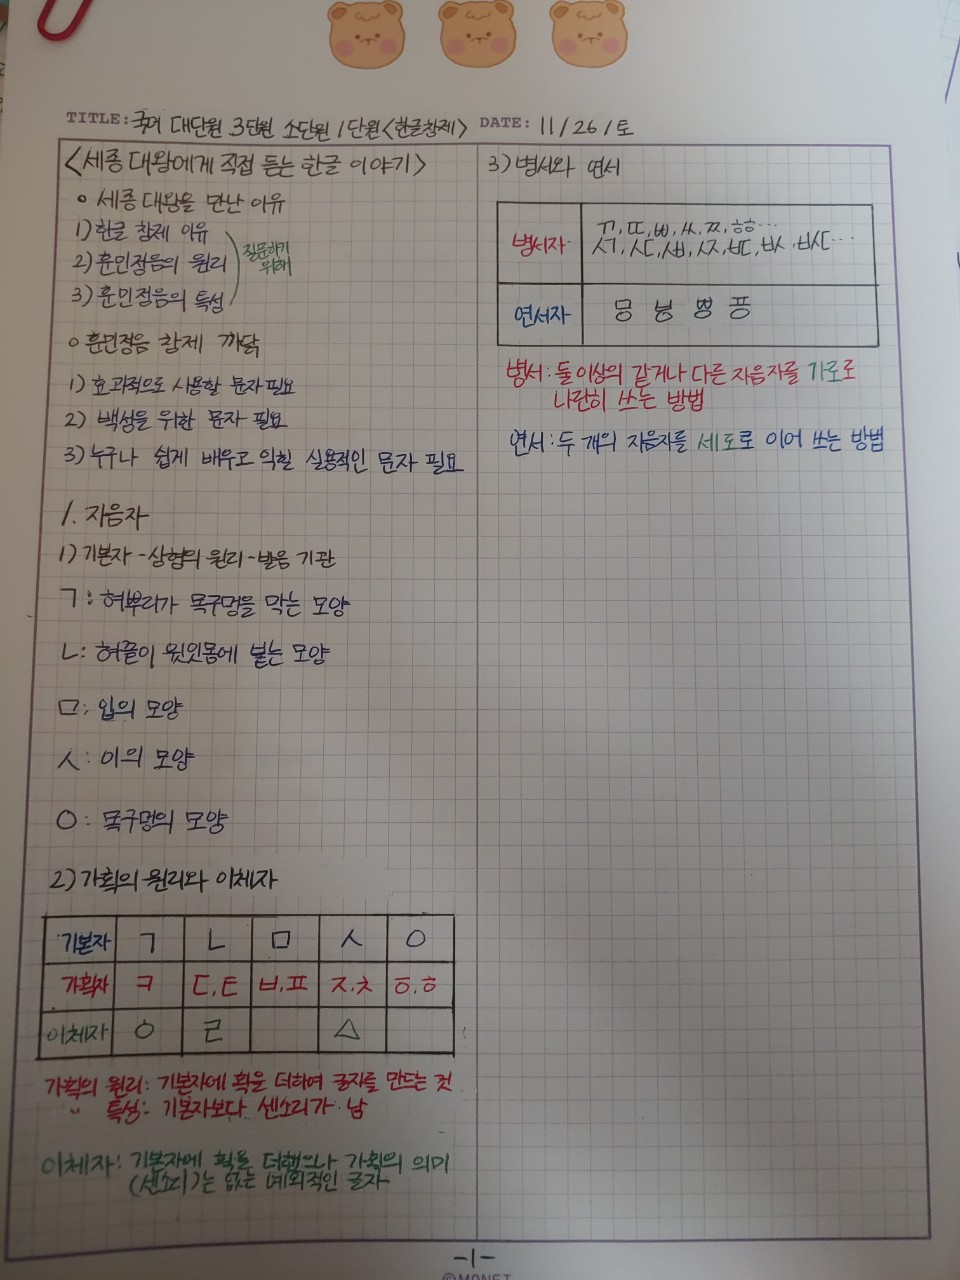 TITLE: 국어 대단원 3단원 소단원 1단원<한글창제> DATE: 11/26/토
<세종 대왕에게 직접 듣는 한글 이야기>
○ 세종 대왕을 만난 이유
1) 한글 창제 이유
2) 훈민정음의 원리
3) 훈민정음의 특성
질문하기
위해
○ 훈민정음 창제 까닭
1) 효과적으로 사용할 문자 필요
2) 백성을 위한 문자 필요
3) 누구나 쉽게 배우고 익힐 실용적인 문자 필요
1. 자음자
1) 기본자 - 상형의 원리 - 발음 기관
ㄱ: 혀뿌리가 목구멍을 막는 모양
ㄴ: 혀끝이 윗잇몸에 붙는 모양
ㅁ: 입의 모양
ㅅ: 이의 모양
ㅇ: 목구멍의 모양
2) 가획의 원리와 이체자
기본자 ㄱ ㄴ ㅁ ㅅ ㅇ
가획자 ㅋ ㄷ,ㅌ ㅂ,ㅍ ㅈ,ㅊ ㆆ,ㅎ
이체자 ㆁ ㄹ ㅿ
가획의 원리: 기본자에 획을 더하여 글자를 만드는 것
" 특성: 기본자보다 센소리가 남
이체자: 기본자에 획을 더했으나 가획의 의미
(센소리)는 없는 예외적인 글자
3) 병서와 연서
병서자 ㄲ,ㄸ,ㅃ,ㅆ,ㅉ,ㆅ…
ㅺ,ㅼ,ㅽ,ㅾ,ㅳ,ㅄ,ㅵ…
연서자 ㅱ ㅸ ㅹ ㆄ
병서: 둘 이상의 같거나 다른 자음자를 가로로
나란히 쓰는 방법
연서: 두 개의 자음자를 세로로 이어 쓰는 방법
-1-
©MONET